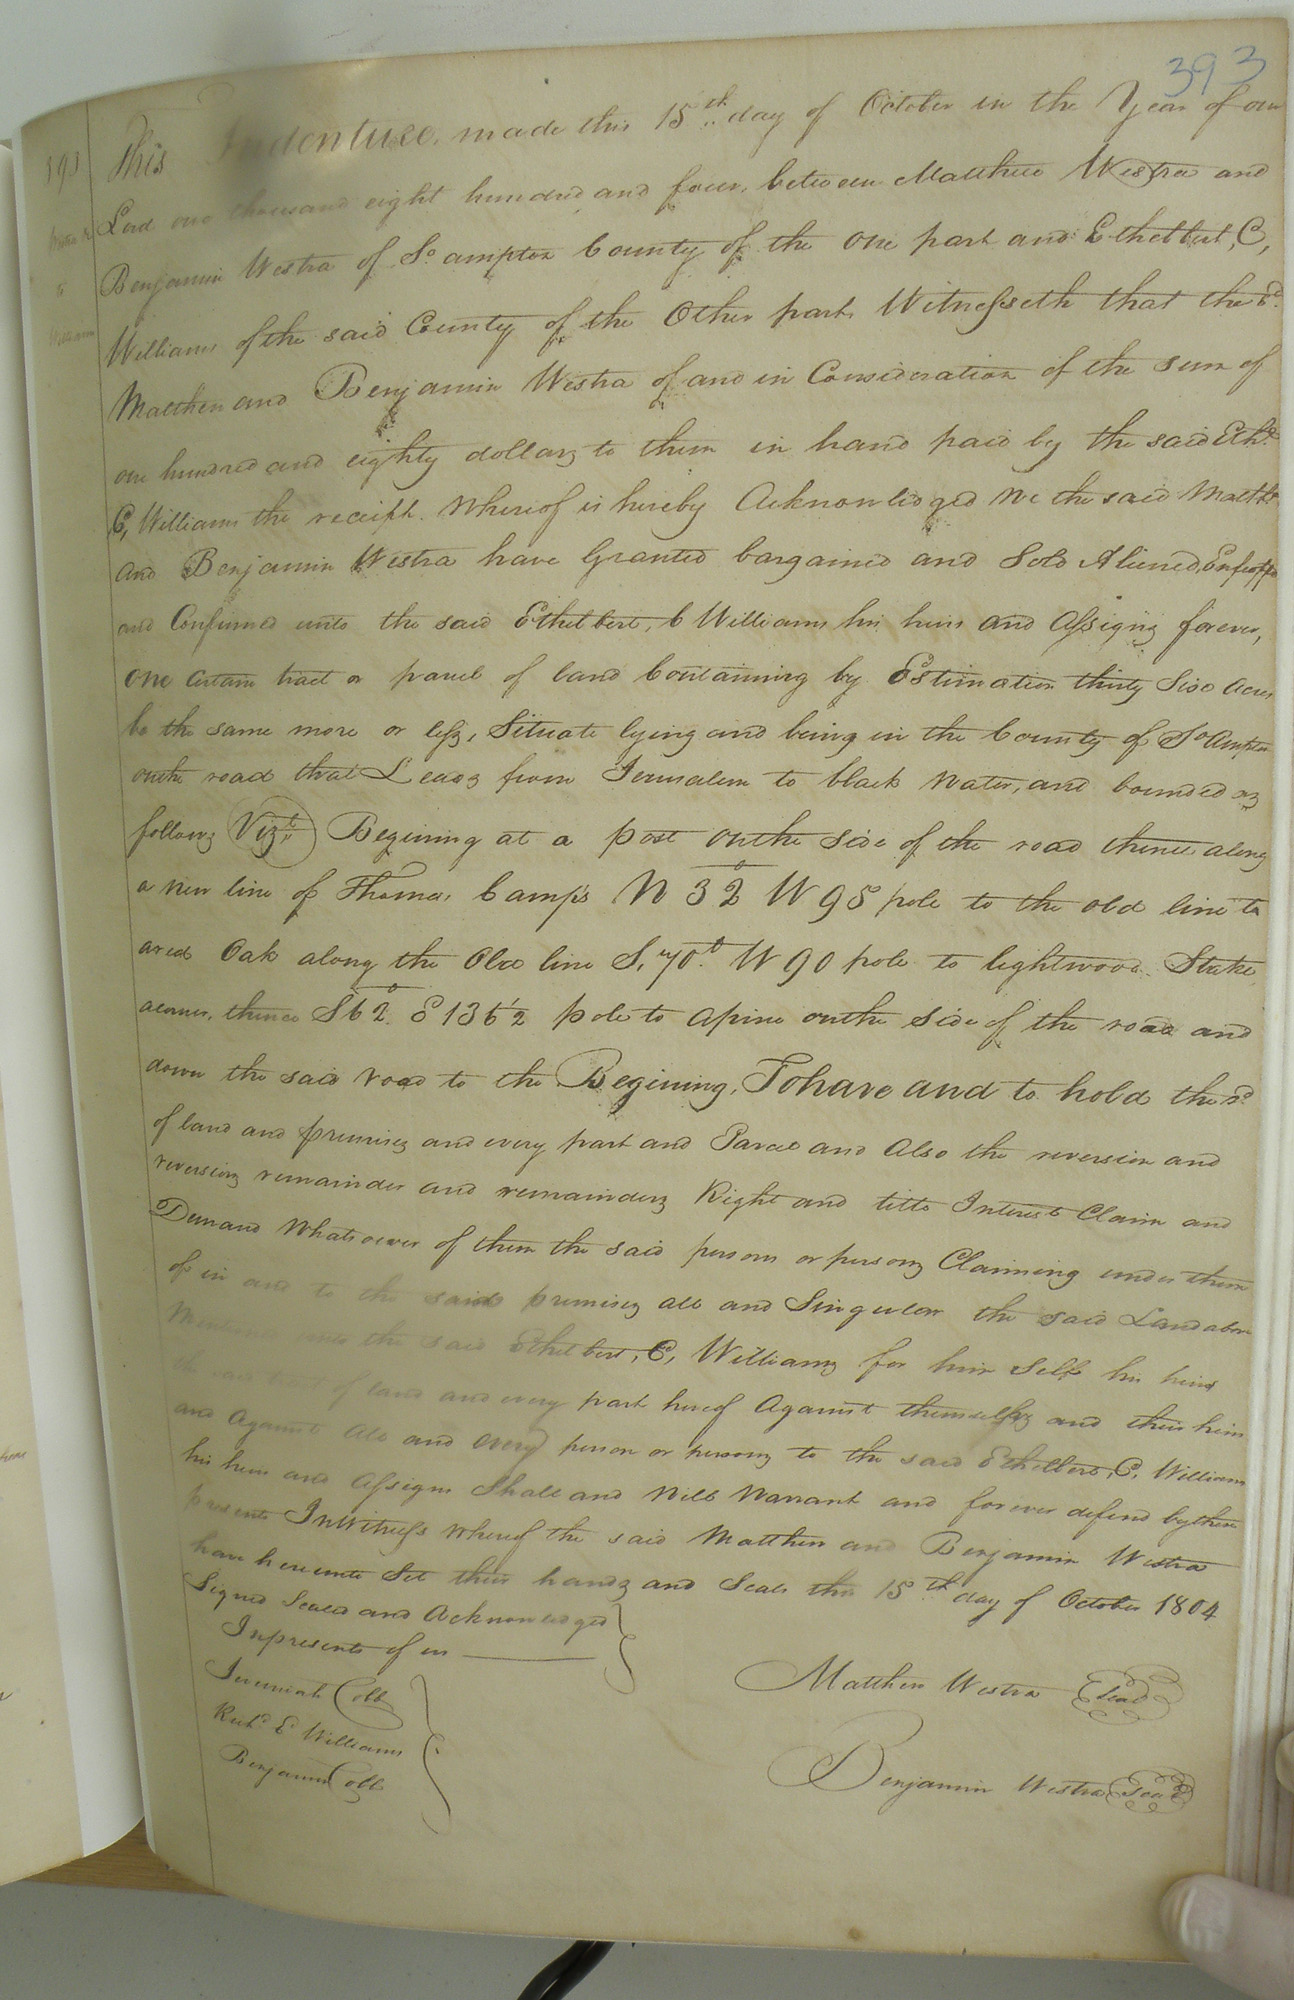 393
393
This Indenture made this 15th day of October in the Year of our
Lord one thousand eight hundred and four, between Matthew Westra and
Benjamin Westra of So ampton County of the one part and Ethelbert, C,
Williams of the said County of the Other part, Witnesseth that the sd
Matthew and Benjamin Westra of and in Consideration of the sum of
one hundred and eighty dollars to them in hand paid by the said Ethd
C, Williams the receipt whereof is hereby Acknowledged We the said Matthw
and Benjamin Westra have Granted bargained and Sold Aliened, Enfeoffed
and Confirmed unto the said Ethelbert, C Williams his heirs and Assigns forever,
one certain tract or parcel of land Containing by Estimation thirty Six acres
be the same more or less, Situate lying and being in the County of So Ampton
on the road that Leads from Jerusalem to black Water, and bounded as
follows Vizt Begining at a post on the side of the road thence along
a new line of Thomas Camp's N 32° W 95 pole to the old line to
a red Oak along the Old line S, 70° W 90 pole to lightwood Stake
a corner, thence S 62° E 136 1/2 pole to a pine on the side of the road and
down the said road to the Begining, To have and to hold the sd
of land and premises and every part and Parcel and Also the reversion and
reversions remainder and remainders Right and title Interest Claim and
Demand Whatsoever of them the said persons or persons Claiming under them
of in and to the said premises all and Singular the said Land above
the said Ethelbert, C, Williams for him Self his heirs
of land and every part hereof Against themselves and their heirs
and Against All and every person or persons to the said Ethelbert, C, Williams
his heirs and Assigns Shall and Will Warrant and forever defend by these
presents In Witness Whereof the said Matthew and Benjamin Westra
have hereunto Set their hands and Seals this 15th day of October 1804
Signed Sealed and Acknowledged
In presents of us
Jeremiah Cobb
Richd E Williams
Benjamin Cobb
Matthew Westra Seal
Benjamin Westra Seal